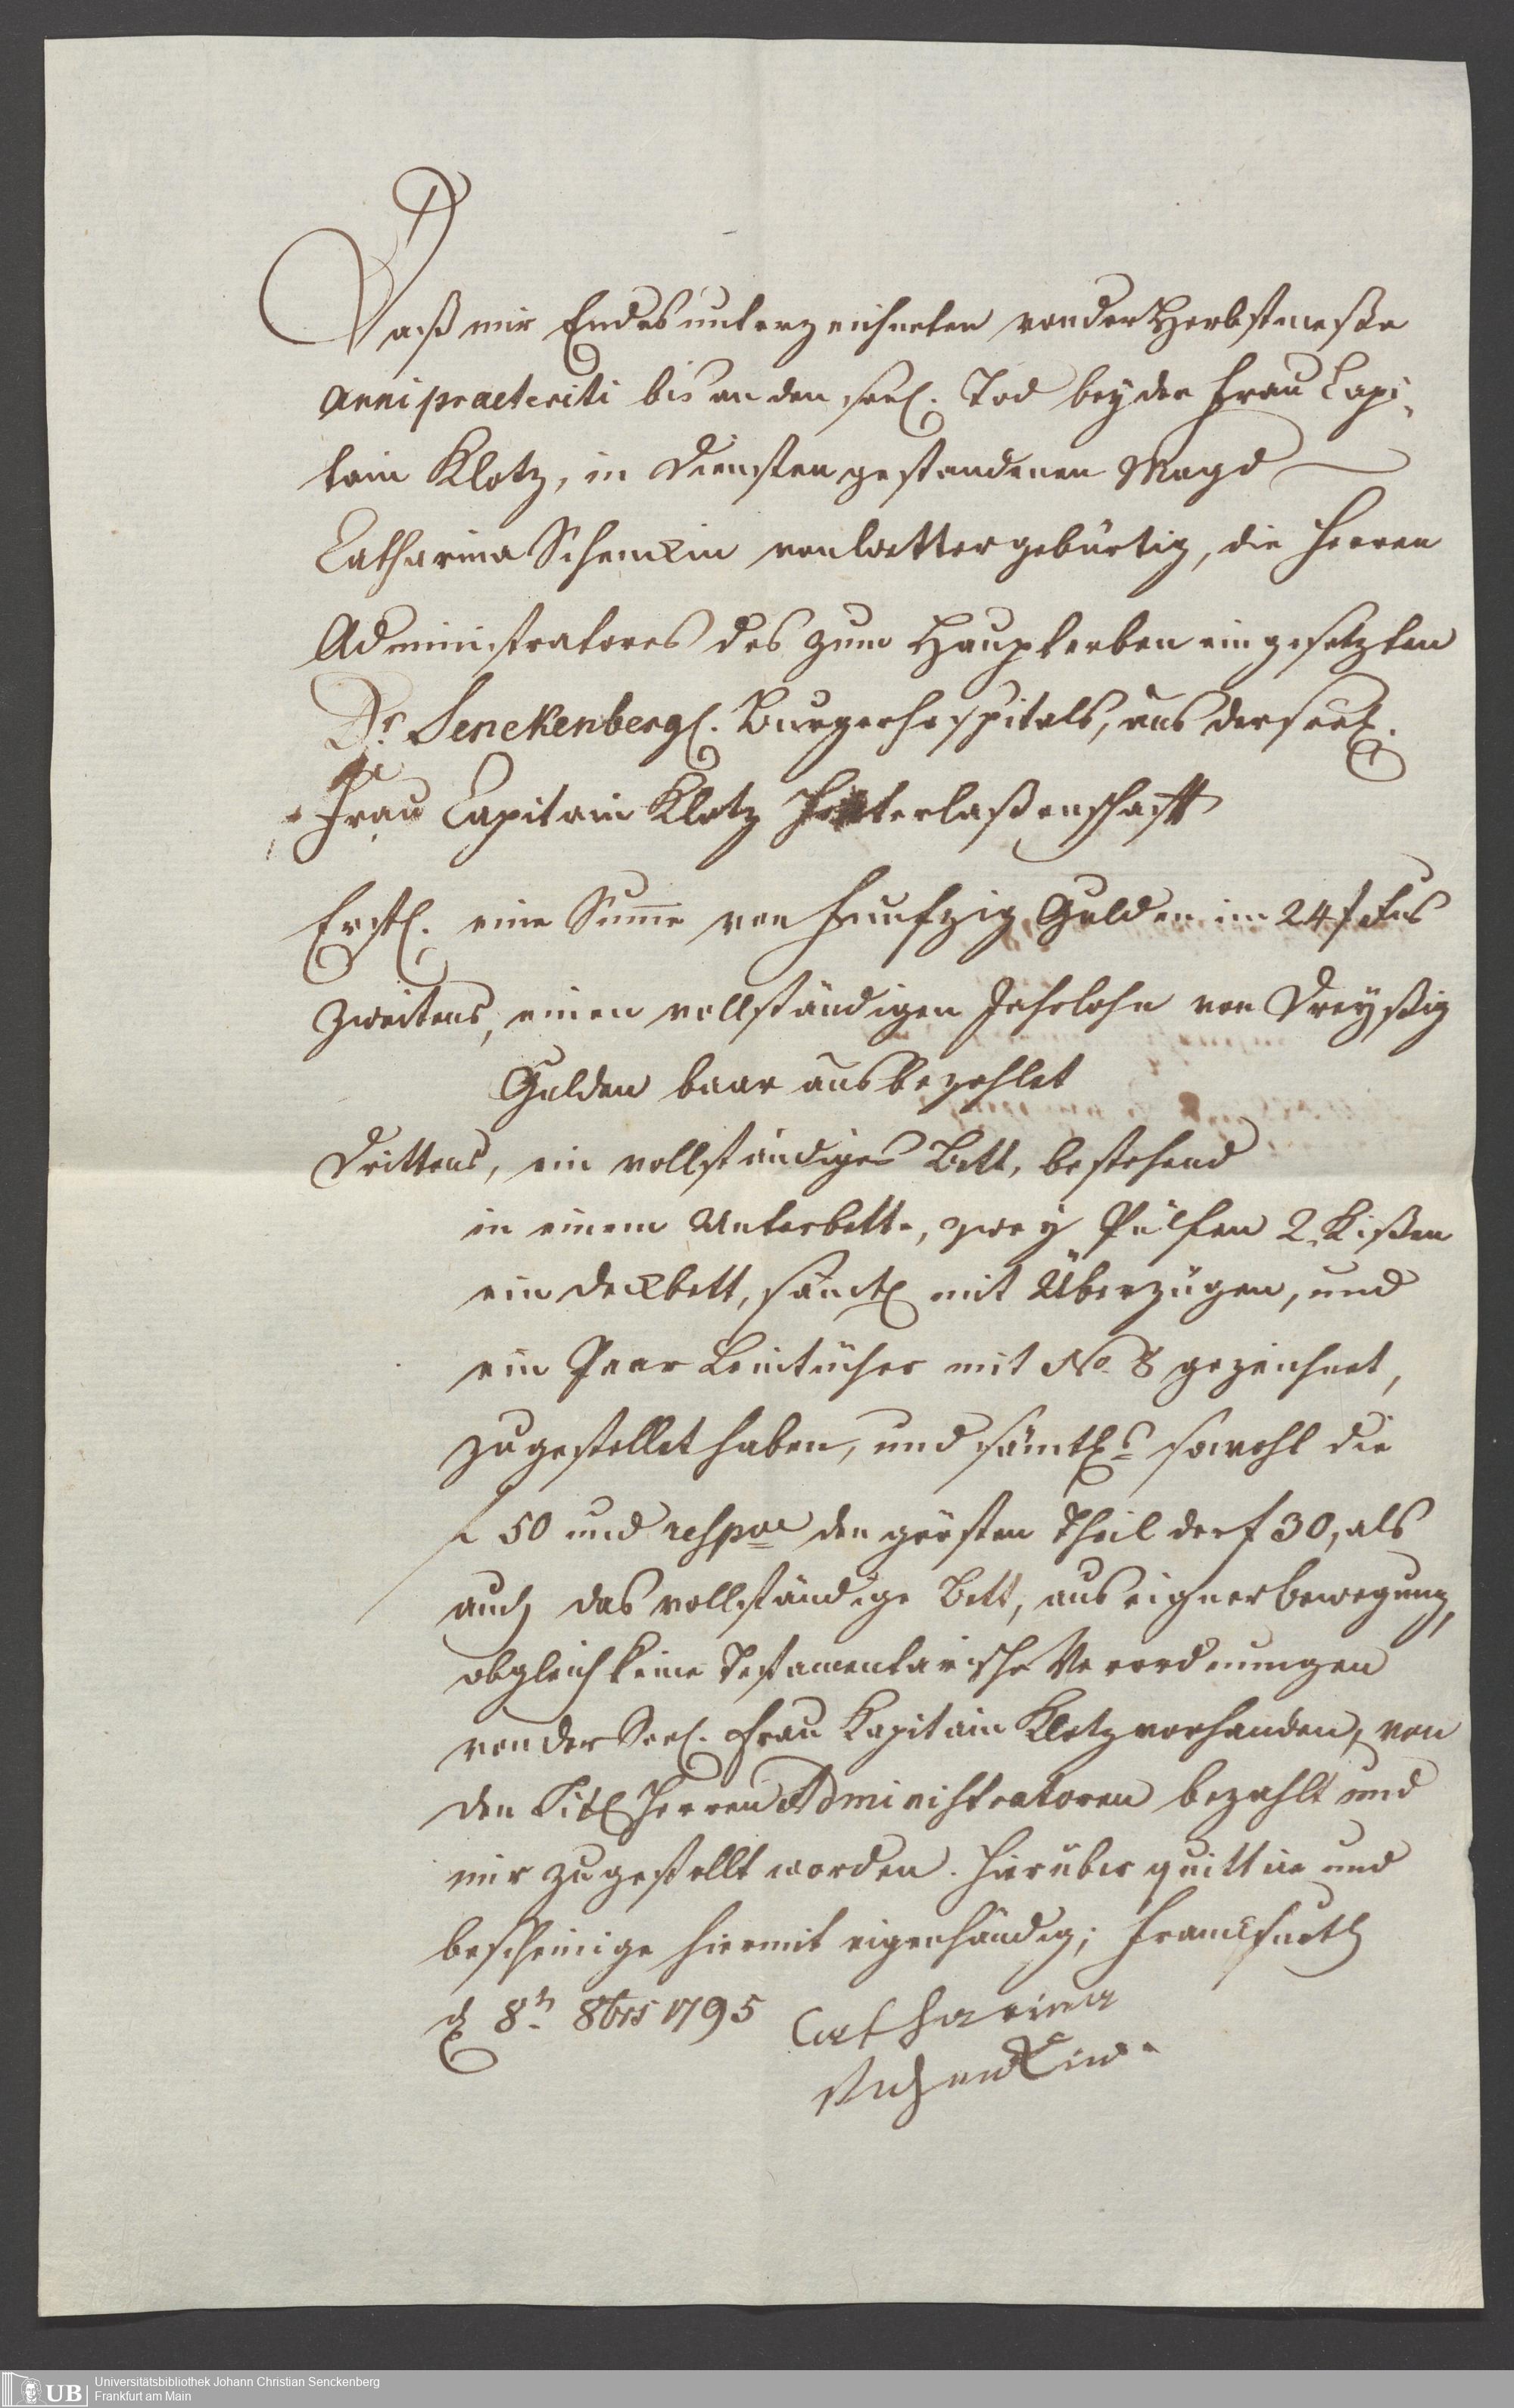 Daß mir Endesunterzeichneten von der Herbstmeße
anni praeteriti bis an den seel. Tod bey der Frau Capi-
tain Klotz, in Diensten gestandenen Magd
Catharina Schenckin von Wetter gebürtig, die Herren
Administratores des zum Haupterben eingesetzten
Dr. Senckenbergl. Burgerhospitals, aus der seel.
Frau Capitain Klotz Hinterlaßenschafft
Erstl. eine Summe von Funfzig Gulden im 24 f Fus
Zweitens, einen vollständigen Jahrlohn von Dreyßig
Gulden baar ausbezahlet
Drittens, ein vollständiges Bett, bestehend
in einem Unterbett, zwey Pülfen 2. Kißen
ein Deckbett, sämtl mit Überzügen, und
ein Paar Leintücher mit No. 8 gezeichnet,
zugestellet haben, und sämtls sowohl die
f 50 und respve den grösten Theil der f 30, als
auch das vollständige Bett, aus eigner Bewegung,
obgleich keine Testamentarische Verordnungen
von der Seel. Frau Kapitain Klotz vorhanden, von
den Titl Herren Administratoren bezahlt und
mir zugestellt worden. Hierüber quittire und
bescheinige hiermit eigenhändig; Franckfurth
d 8n 8brs 1795
Catharina
Schenckin.
UB
Universitätsbibliothek Johann Christian Senckenberg
Frankfurt am Main